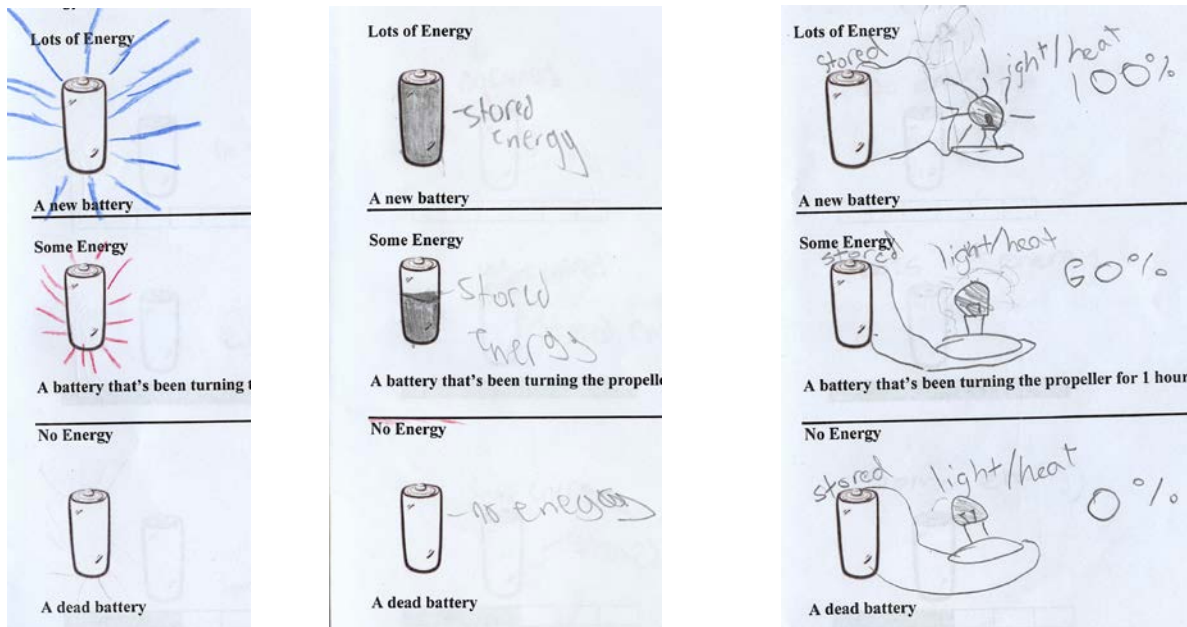 Lots of Energy
A new battery
Some Energy
A battery that's been turning t
No Energy
A dead battery
Lots of Energy
stored
energy
A new battery
Some Energy
stored
energy
A battery that's been turning the propelle
No Energy
no
A dead battery
Lots of Energy
stored
light/heat
100%
A new battery
Some Energy
stored
light/heat
60%
A battery that's been turning the propeller for 1 hour
No Energy
stored
light/heat
0%
A dead battery